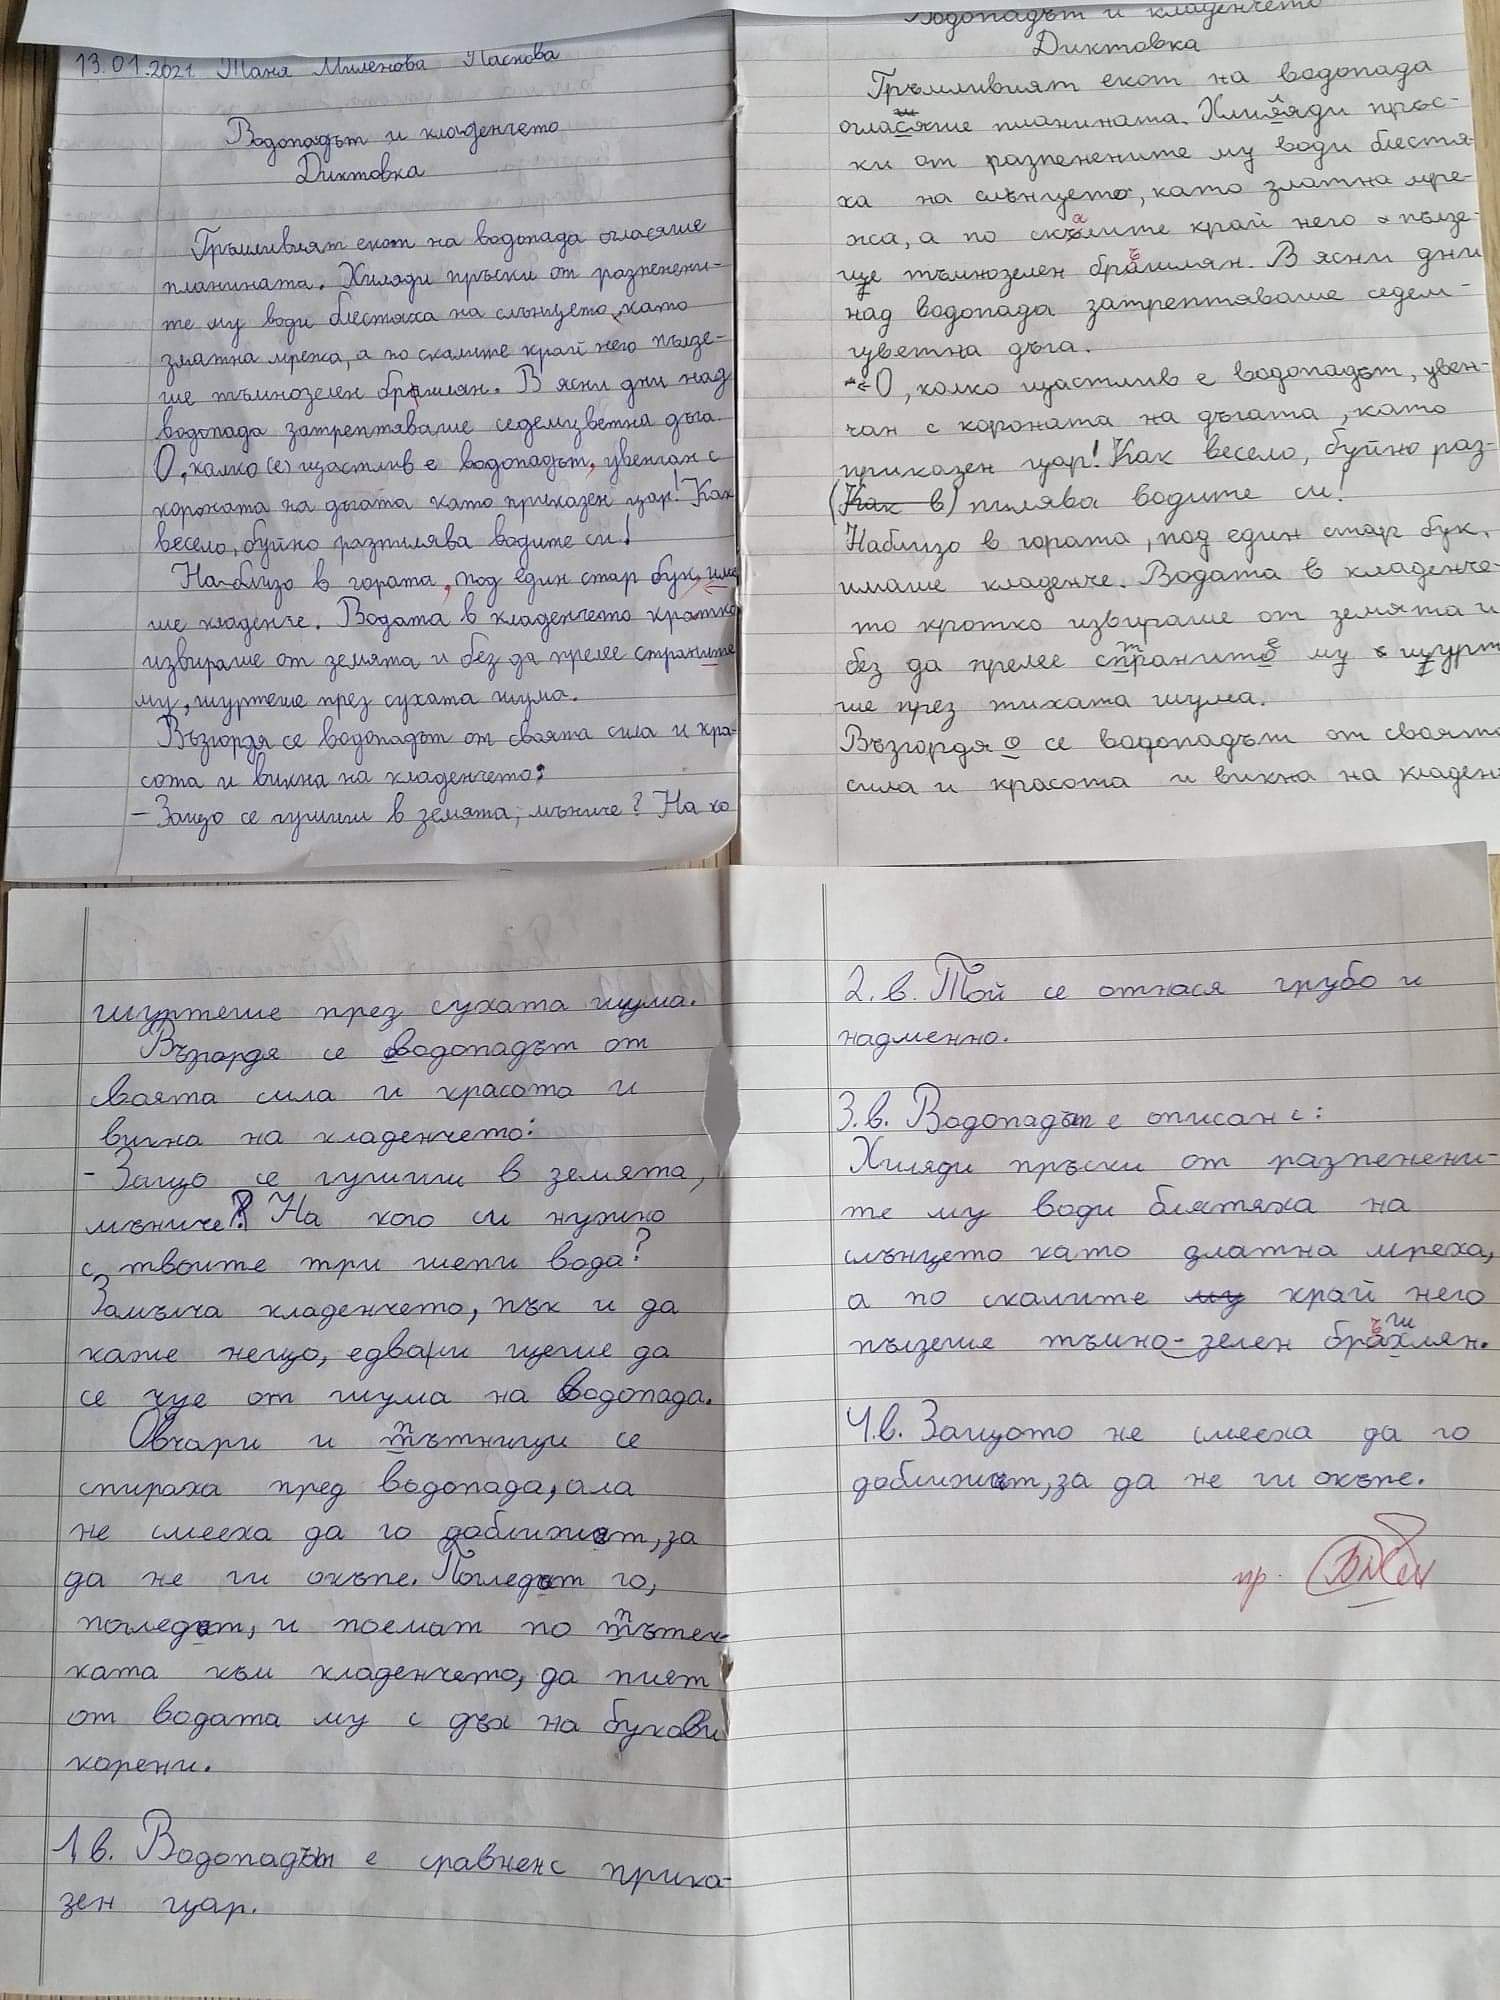 13.01.2021. Таня Миленова Паскова
Водопадът и кладенчето
Диктовка
Гръмливият екот на водопада огласяше
планината. Хиляди пръски от разпенени-
те му води блестяха на слънцето, като
златна мрежа, а по скалите край него пълзе-
ше тъмнозелен бръшлян. В ясни дни над
водопада затрептяваше седемцветна дъга.
О, колко (е) щастлив е водопадът, увенчан с
короната на дъгата като приказен цар! Как
весело, буйно разпилява водите си!
Наблизо в гората, под един стар бук, има
ше кладенче. Водата в кладенчето кротко
извираше от земята и без да прелее страните
му, шуртеше през сухата шума.
Възгордя се водопадът от своята сила и кра-
сота и викна на кладенчето:
- Защо се гушиш в земята, мъниче? На ко
Водопадът и кладенчето
Диктовка
Гръмливият екот на водопада
огласяше планината. Хиляди пръс-
ки от разпенените му води блестя-
ха на слънцето, като златна мре-
жа, а по скалите край него пълзе-
ше тъмнозелен бръшлян. В ясни дни
над водопада затрептяваше седем-
цветна дъга.
О, колко щастлив е водопадът, увен-
чан с короната на дъгата, като
приказен цар! Как весело, буйно раз-
(Как в) пилява водите си!
Наблизо в гората, под един стар бук,
имаше кладенче. Водата в кладенче-
то кротко извираше от земята и
без да прелее страните му шурт
ше през тихата шума.
Възгордя се водопадът от своята
сила и красота и викна на кладен
шуртеше през сухата шума.
Възгордя се водопадът от
своята сила и красота и
викна на кладенчето:
- Защо се гушиш в земята,
мъниче? На кого си нужно
с твоите три шепи вода?
Замълча кладенчето, пък и да
каже нещо, едвали щеше да
се чуе от шума на водопада.
Овчари и пътници се
спираха пред водопада, ала
не смееха да го доближат, за
да не ги окъпе. Погледат го,
погледат, и поемат по пътеч-
ката към кладенчето, да пият
от водата му с дъх на букови
корени.
1.в. Водопадът е сравнен с прика-
зен цар.
2.в. Той се отнася грубо и
надменно.
3.в. Водопадът е описан с:
Хиляди пръски от разпенени-
те му води блятяха на
слънцето като златна мреха,
а по скалите му край него
пълзеше тъмно-зелен бръшлян.
4.в. Защото не смееха да го
доближат, за да не ги окъпе.
пр.